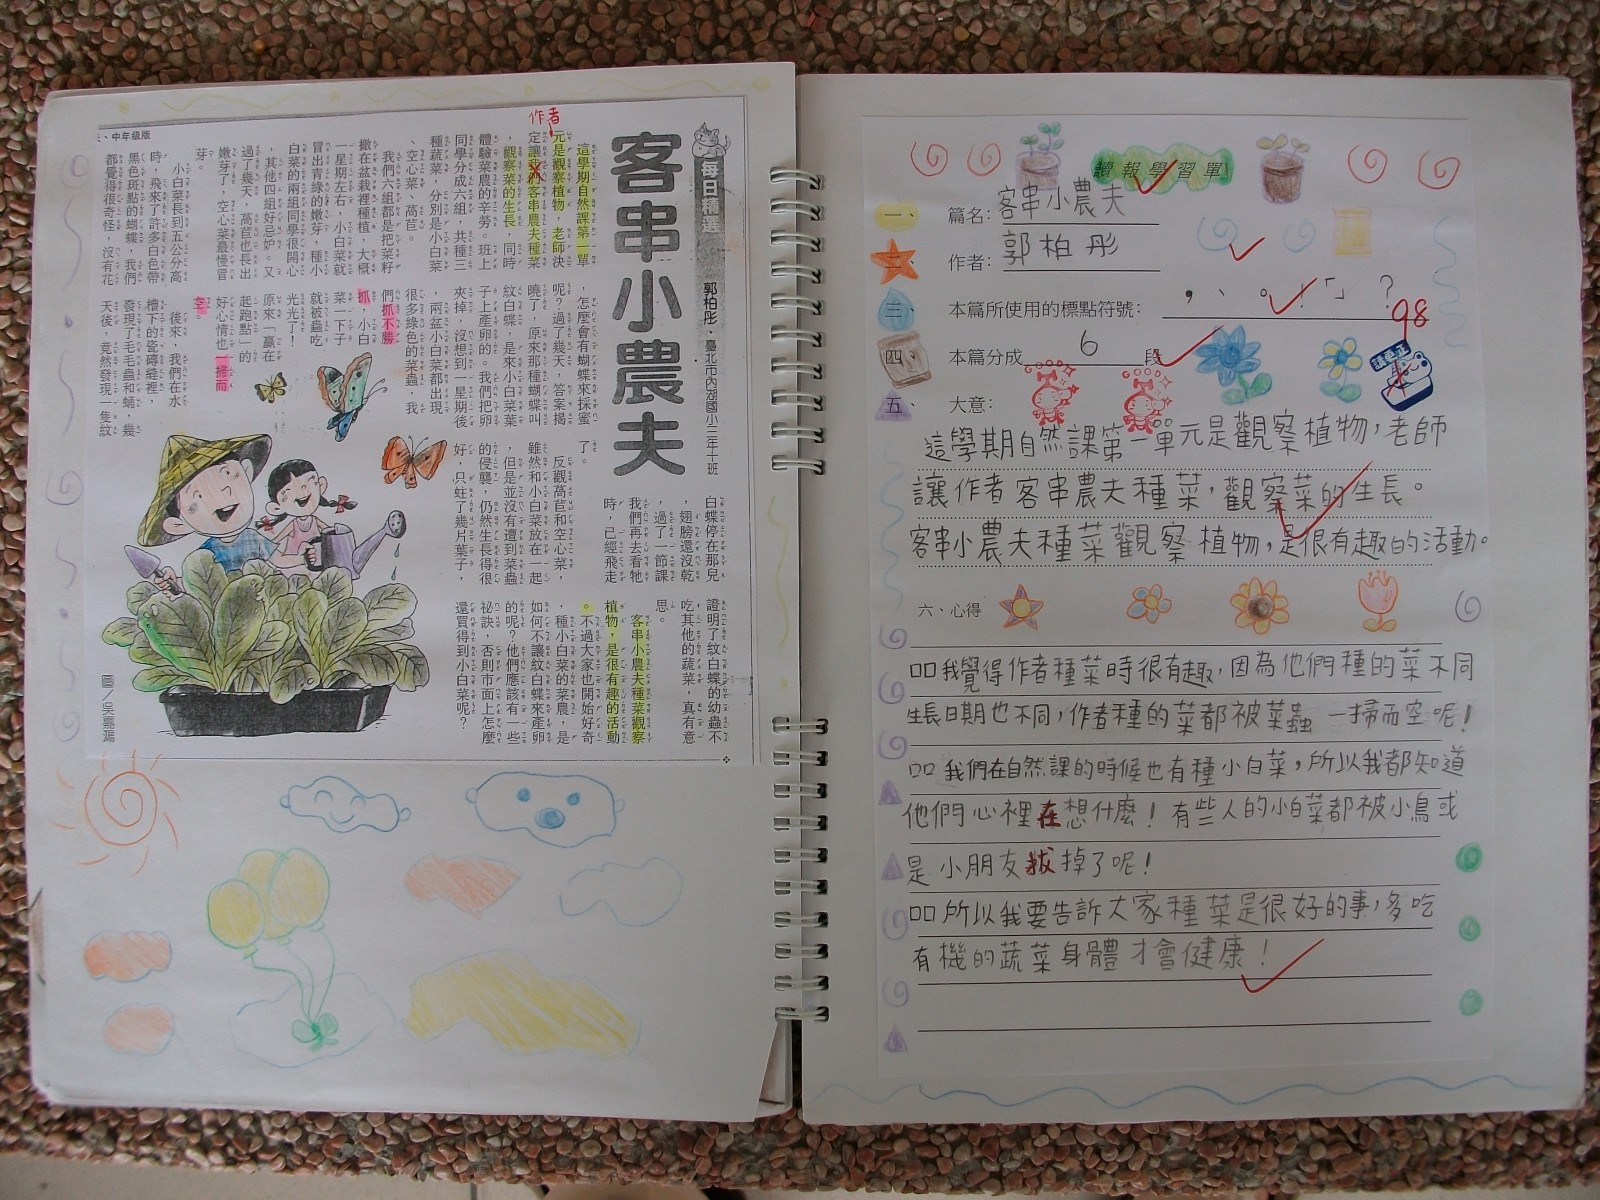 三、中年級版
每日精選
客串小農夫
郭柏彤・臺北市內湖國小三年十班
作者
這學期自然課第一單
元是觀察植物，老師決
定讓我們客串農夫種菜
，觀察菜的生長，同時
體驗菜農的辛勞。班上
同學分成六組，共種三
種蔬菜，分別是小白菜
、空心菜、萵苣。
我們六組都是把菜籽
撒在盆栽裡種植，大概
一星期左右，小白菜就
冒出青綠的嫩芽，種小
白菜的兩組同學很開心
，其他四組好忌妒。又
過了幾天，萵苣也長出
嫩芽了，空心菜最慢冒
芽。
小白菜長到五公分高
時，飛來了許多白色帶
黑色斑點的蝴蝶，我們
都覺得很奇怪，沒有花
，怎麼會有蝴蝶來採蜜
呢？過了幾天，答案揭
曉了，原來那種蝴蝶叫
紋白蝶，是來小白菜葉
子上產卵的。我們把卵
夾掉，沒想到一星期後
，兩盆小白菜都出現
很多綠色的菜蟲，我
們抓不勝
抓，小白
菜一下子
就被蟲吃
光光了！
原來「贏在
起跑點」的
好心情也一掃而
空。
後來，我們在水
槽下的瓷磚縫裡，
發現了毛毛蟲和蛹，幾
天後，竟然發現一隻紋
白蝶停在那兒
，翅膀還沒乾
，過了一節課
我們再去看牠
時，已經飛走
了。
反觀萵苣和空心菜，
雖然和小白菜放在一起
，但是並沒有遭到菜蟲
的侵襲，仍然生長得很
好，只蛀了幾片葉子，
證明了紋白蝶的幼蟲不
吃其他的蔬菜，真有意
思。
客串小農夫種菜觀察
植物，是很有趣的活動
。不過大家也開始好奇
，種小白菜的菜農，是
如何不讓紋白蝶來產卵
的呢？他們應該有一些
祕訣，否則市面上怎麼
還買得到小白菜呢？
圖／吳嘉鴻
讀報學習單
一、篇名：客串小農夫
二、作者：郭柏彤
三、本篇所使用的標點符號：，、。！「」？
98
四、本篇分成 6 段
五、大意：
這學期自然課第一單元是觀察植物，老師
讓作者客串農夫種菜，觀察菜的生長。
客串小農夫種菜觀察植物，是很有趣的活動。
六、心得
口口我覺得作者種菜時很有趣，因為他們種的菜不同
生長日期也不同，作者種的菜都被菜蟲一掃而空呢！
口口我們在自然課的時候也有種小白菜，所以我都知道
他們心裡在想什麼！有些人的小白菜都被小鳥或
是小朋友拔掉了呢！
口口所以我要告訴大家種菜是很好的事，多吃
有機的蔬菜身體才會健康！